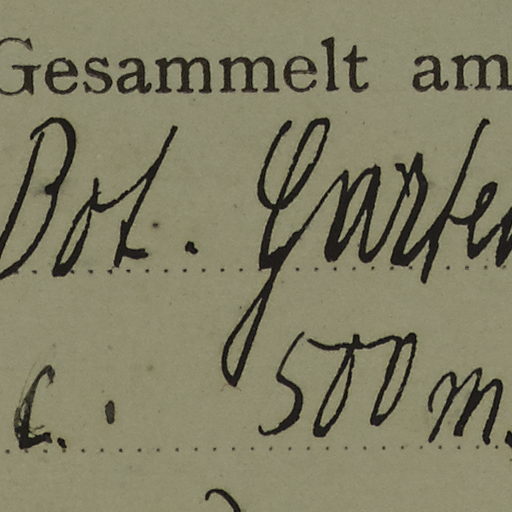 Gesammelt am
Bot. Garten
c. 500 m.